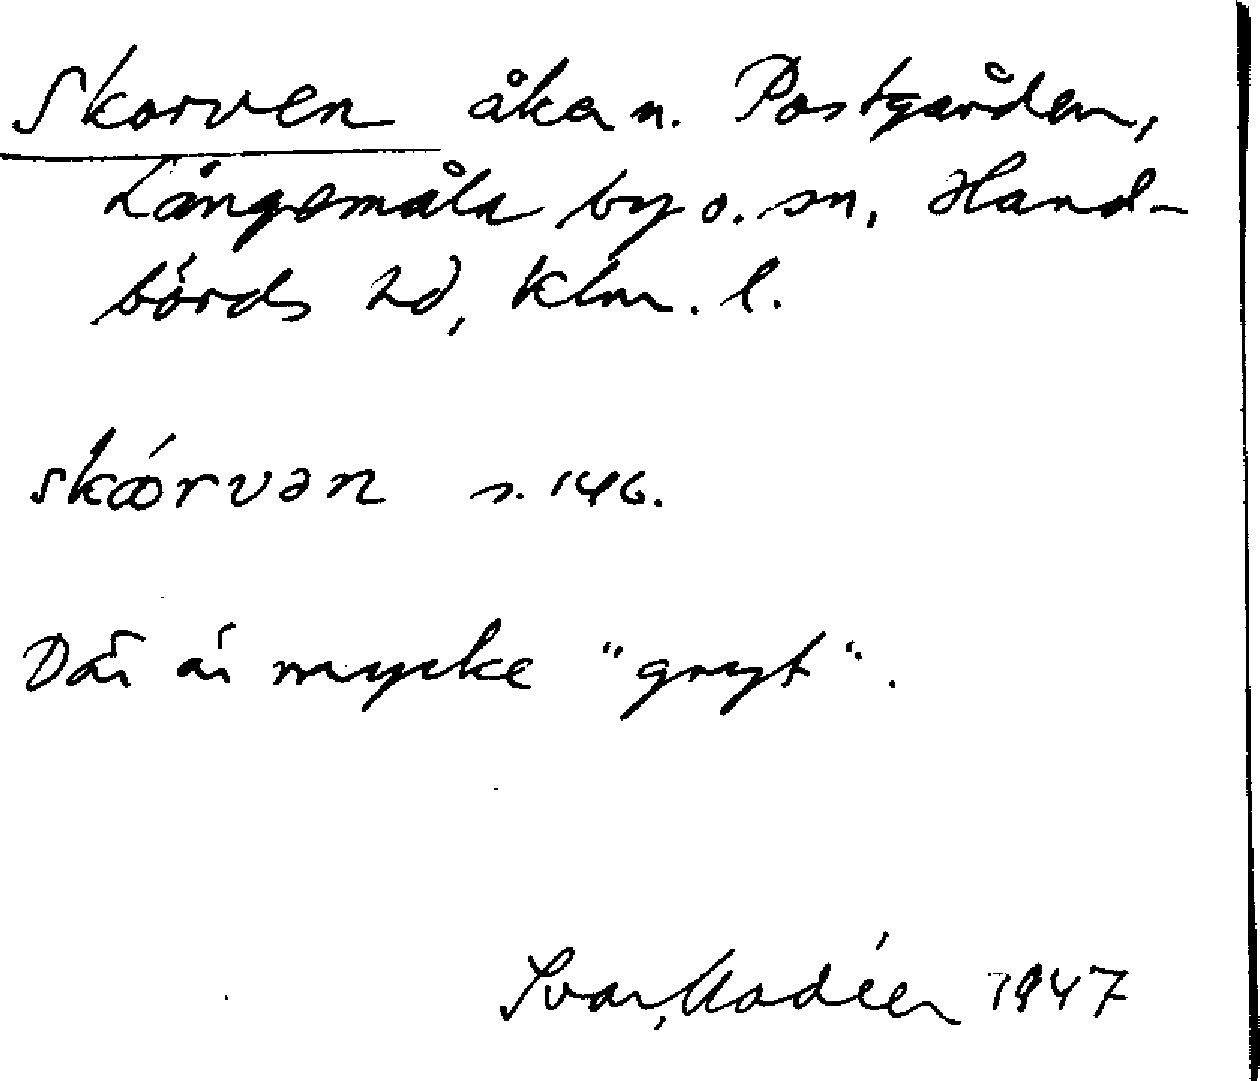 Skorven åker n. Postgården,
Långemåla by o. sn, Hand-
börds hd, Klm. l.
skórvən s. 146.
Där är mycke "gryt".
Ivar Modéer 1947